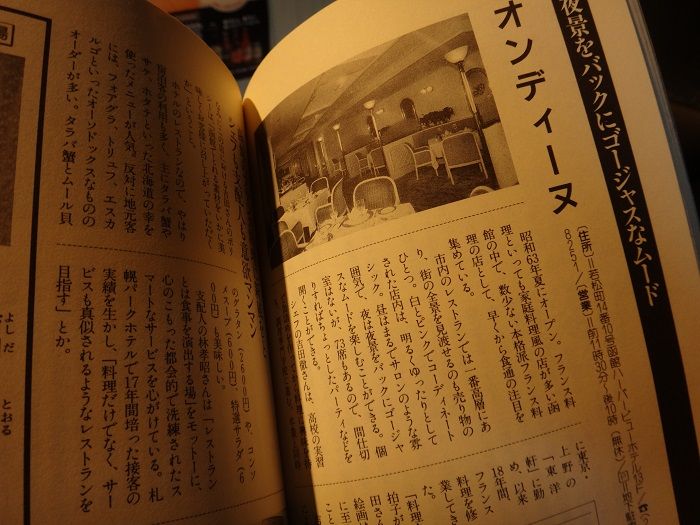 夜景をバックにゴージャスなムード
オンディーヌ
若松町14番10号函館ハーバービューホテル13F
8251／〈営業〉＝前11時30分〜後10時
昭和63年夏にオープン。フランス料
理といっても家庭料理風の店が多い函
館の中で、数少ない本格派フランス料
理の店として、早くから食通の注目を
集めている。
市内のレストランでは一番高層にあ
り、街の全景を見渡せるのも売り物の
ひとつ。白とピンクでコーディネート
された店内は、明るくゆったりとして
シック。昼はまるでサロンのような雰
囲気で、夜は夜景をバックにゴージャ
スなムードを楽しむことができる。個
室はないが、73席もあるので、間仕切
りすればちょっとしたパーティなどを
開くことができる。
シェフの吉田徹さんは、高校の実習
に東京・
上野の
「東洋
軒」に勤
め、以来
18年間
フランス
料理を修
業して
「料理
た。
拍子が
田さん
絵画
こと
ホテルのレストランなので、やはり
サケ、ホタテといった北海道の幸を
使ったメニューが人気。反対に地元客
には、フォアグラ、トリュフ、エスカ
ルゴといったオーソドックスなものの
オーダーが多い。タラバ蟹とムール貝
のグラタン（2600円）や、コンソ
メスープ（600円）、特選サラダ（6
00円）も美味しい。
支配人の林孝昭さんは「レストラン
とは食事を演出する場」をモットーに、
心のこもった都会的で洗練されたス
マートなサービスを心がけている。札
幌パークホテルで17年間培った接客の
実績を生かし、「料理だけでなく、サー
ビスも真似されるようなレストランを
目指す」とか。
よしだ
とおる